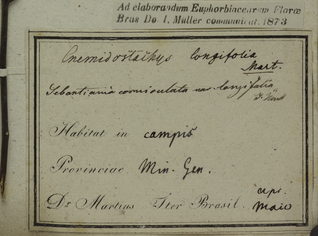 Ad elaborandum Euphorbiacearum Florae
Bras Dr I. Müller communicat. 1873
Cnemidostachys longifolia
Mart.
Sebastiania corniculata var longifolia
Habitat in campis
Provinciae Min. Gen.
Dr Martius Iter Brasil. apr.
Maio